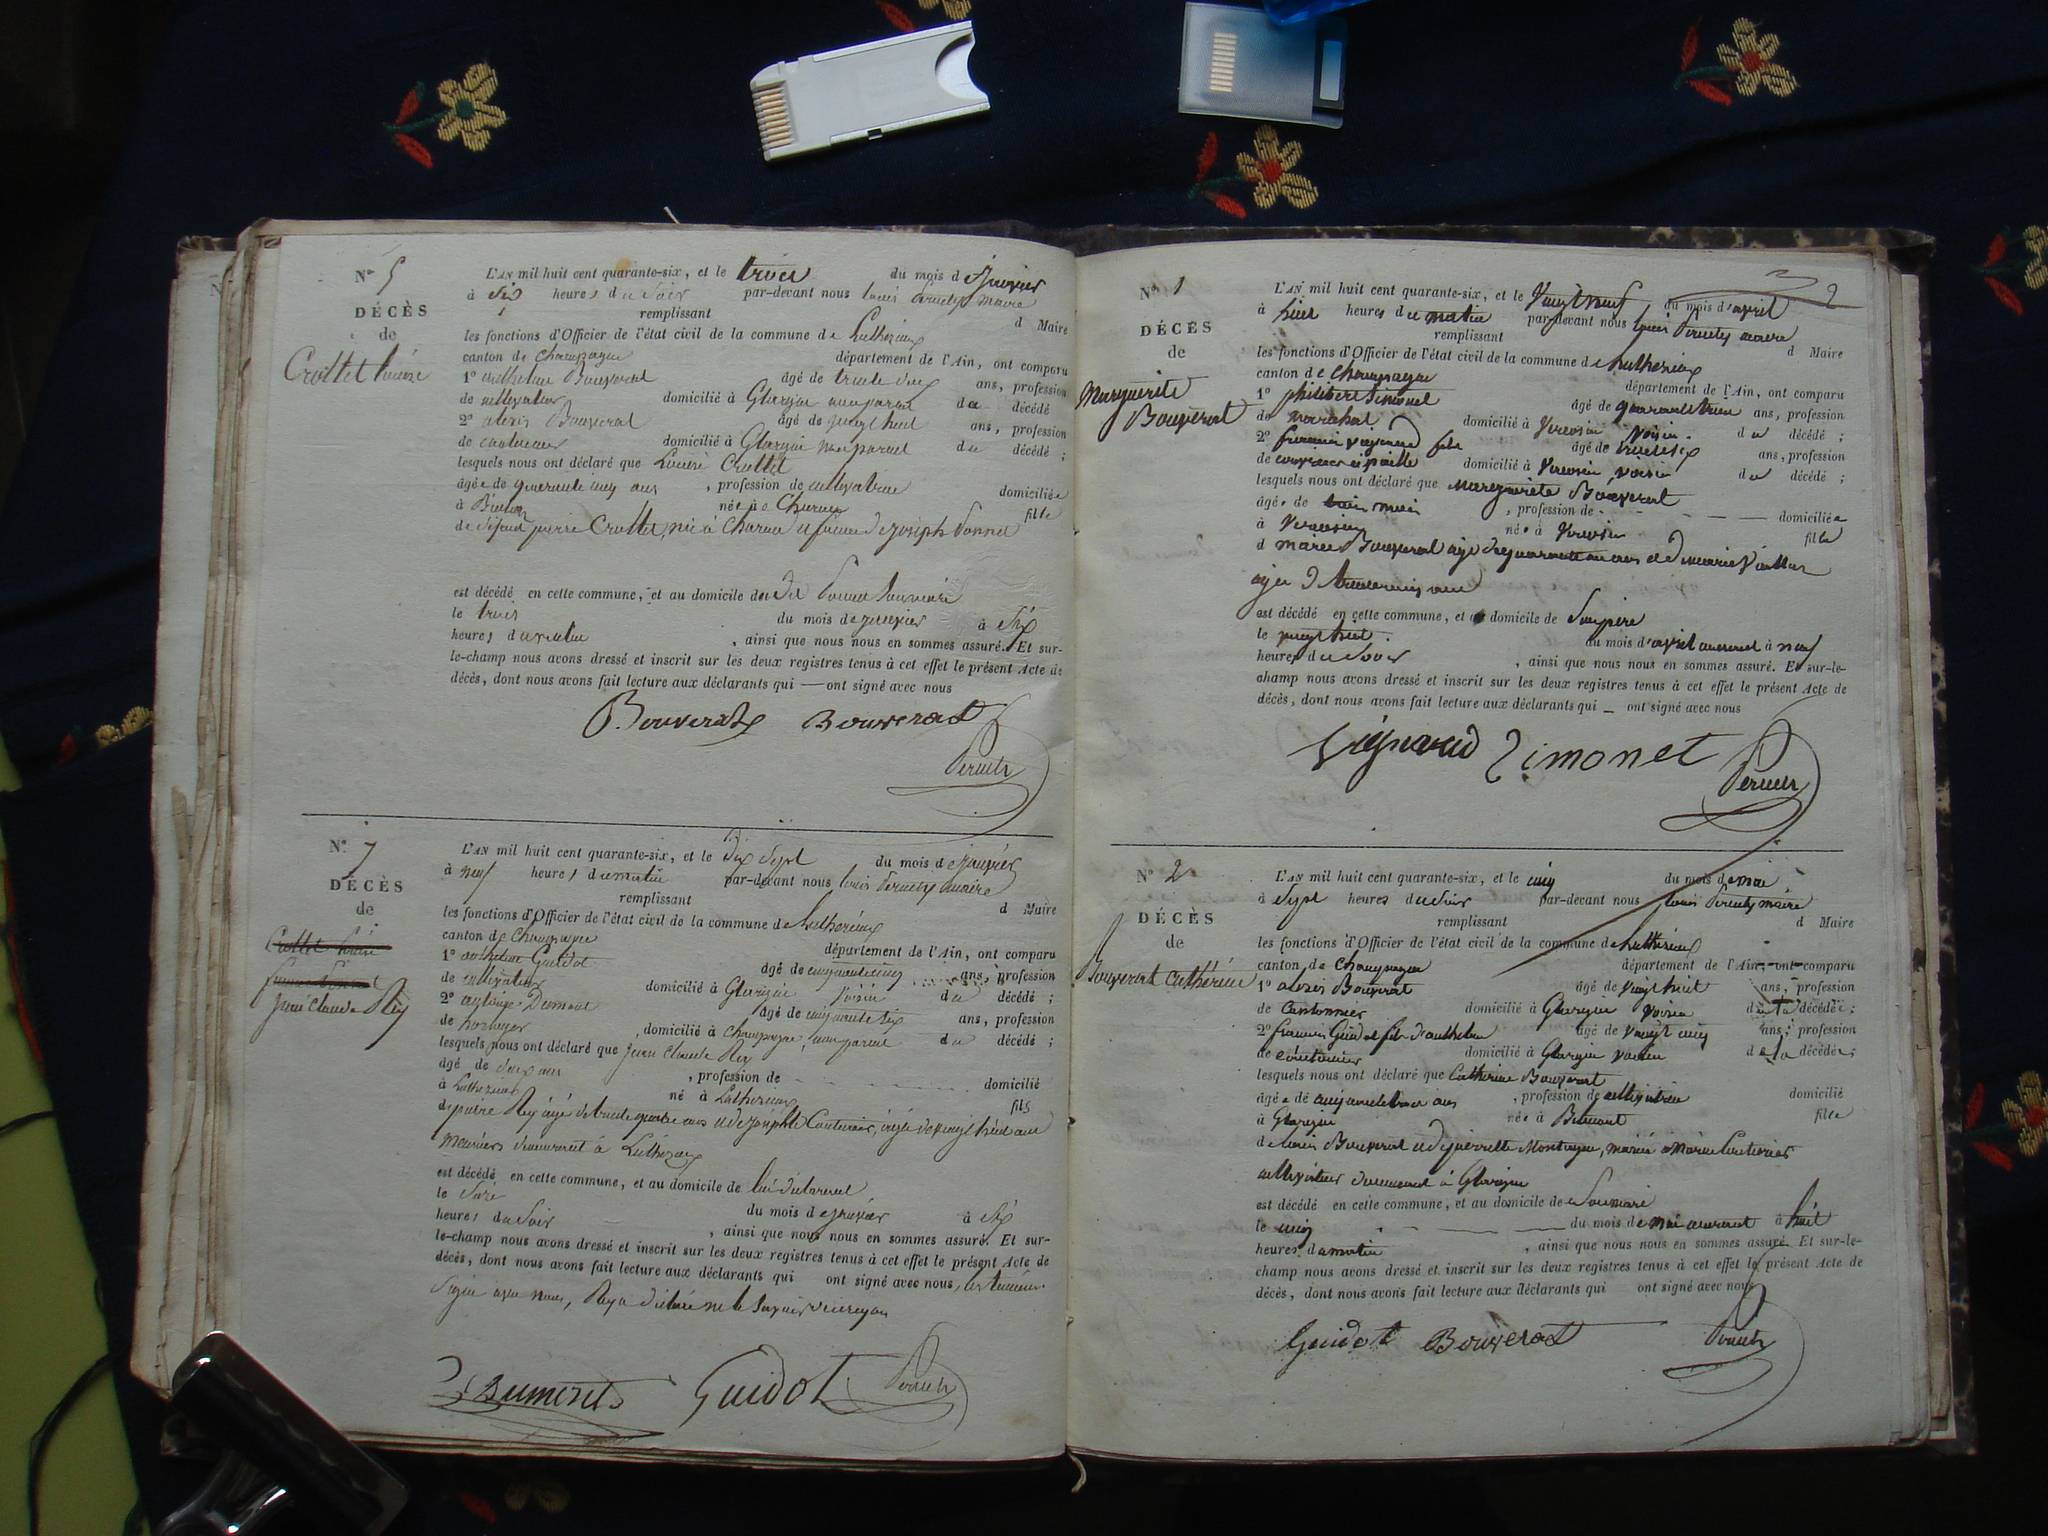 N° 5
DÉCÈS
de
Crottet
L'AN mil huit cent quarante-six, et le trois du mois de janvier
à six heures du soir par-devant nous louis maire
remplissant d Maire
les fonctions d'Officier de l'état civil de la commune de Luthezieux
canton de champagne département de l'Ain, ont comparu
1° anthelme Bouverat âgé de trente deux ans, profession
de cultivateur domicilié à non parent du décédé
2° alexis Bouverat âgé de vingt huit ans, profession
de cantonnier domicilié à non parent du décédé ;
lesquels nous ont déclaré que Crottet
âgée de quarante cinq ans , profession de cultivatrice domiciliée
à née à Charnoz fille
de pierre Crottet, à femme de joseph
est décédé en cette commune, et au domicile
le trois du mois de janvier à six
heures du matin , ainsi que nous nous en sommes assuré. Et sur-
le-champ nous avons dressé et inscrit sur les deux registres tenus à cet effet le présent Acte de
décès, dont nous avons fait lecture aux déclarants qui — ont signé avec nous
Bouverat Bouverat
N° 7
DÉCÈS
de
jean Claude Rey
L'AN mil huit cent quarante-six, et le dix sept du mois de janvier
à neuf heures du matin par-devant nous louis maire
remplissant d Maire
les fonctions d'Officier de l'état civil de la commune de Luthezieux
canton de champagne département de l'Ain, ont comparu
1° anthelme Guidot âgé de cinquante cinq ans, profession
de cultivateur domicilié à voisin du décédé ;
2° Dumont âgé de cinquante six ans, profession
de horloger domicilié à champagne, non parent du décédé ;
lesquels nous ont déclaré que jean Claude Rey
âgé de deux ans , profession de domicilié
à Luthezieux né à Luthezieux fils
de Rey âgé de trente quatre ans et de âgée de vingt huit ans
mariés demeurant à Luthezieux
est décédé en cette commune, et au domicile de
le du mois de janvier à six
heures du soir , ainsi que nous nous en sommes assuré. Et sur-
le-champ nous avons dressé et inscrit sur les deux registres tenus à cet effet le présent Acte de
décès, dont nous avons fait lecture aux déclarants qui ont signé avec nous, les témoins
signé avec nous, Rey a déclaré ne le savoir
Dumont Guidot
N° 1 2
DÉCÈS
de
Marguerite
Bouverat
L'AN mil huit cent quarante-six, et le vingt neuf du mois d'avril
à huit heures du matin par-devant nous louis maire
remplissant d Maire
les fonctions d'Officier de l'état civil de la commune de Luthezieux
canton de Champagne département de l'Ain, ont comparu
1° philibert Simonet âgé de quarante trois ans, profession
de marechal domicilié à voisin du décédé ;
2° âgé de trente six ans, profession
de domicilié à voisin du décédé ;
lesquels nous ont déclaré que marguerite Bouverat
âgée de trois mois , profession de domiciliée
à née à fille
d Bouverat âgé de quarante un ans et de marie
âgée de
est décédé en cette commune, et au domicile de son père
le vingt huit du mois d'avril courant à neuf
heures du soir , ainsi que nous nous en sommes assuré. Et sur-le-
champ nous avons dressé et inscrit sur les deux registres tenus à cet effet le présent Acte de
décès, dont nous avons fait lecture aux déclarants qui — ont signé avec nous
Simonet
N° 2
DÉCÈS
de
Bouverat Cathérine
L'AN mil huit cent quarante-six, et le cinq du mois de mai
à sept heures du soir par-devant nous louis maire
remplissant d Maire
les fonctions d'Officier de l'état civil de la commune de Luthezieux
canton de Champagne département de l'Ain, ont comparu
1° alexis Bouverat âgé de vingt huit ans, profession
de cantonnier domicilié à voisin de la décédée ;
2° francois Guidot fils d'anthelme âgé de vingt cinq ans, profession
de domicilié à voisin de la décédée ;
lesquels nous ont déclaré que Catherine Bouverat
âgée de cinquante trois ans , profession de cultivatrice domicilié
à née à Belmont fille
de Bouverat et de pierrette mariée
cultivateur demeurant à
est décédé en cette commune, et au domicile de son mari
le cinq du mois de mai courant à huit
heures du matin , ainsi que nous nous en sommes assuré. Et sur-le-
champ nous avons dressé et inscrit sur les deux registres tenus à cet effet le présent Acte de
décès, dont nous avons fait lecture aux déclarants qui ont signé avec nous
Guidot Bouverat